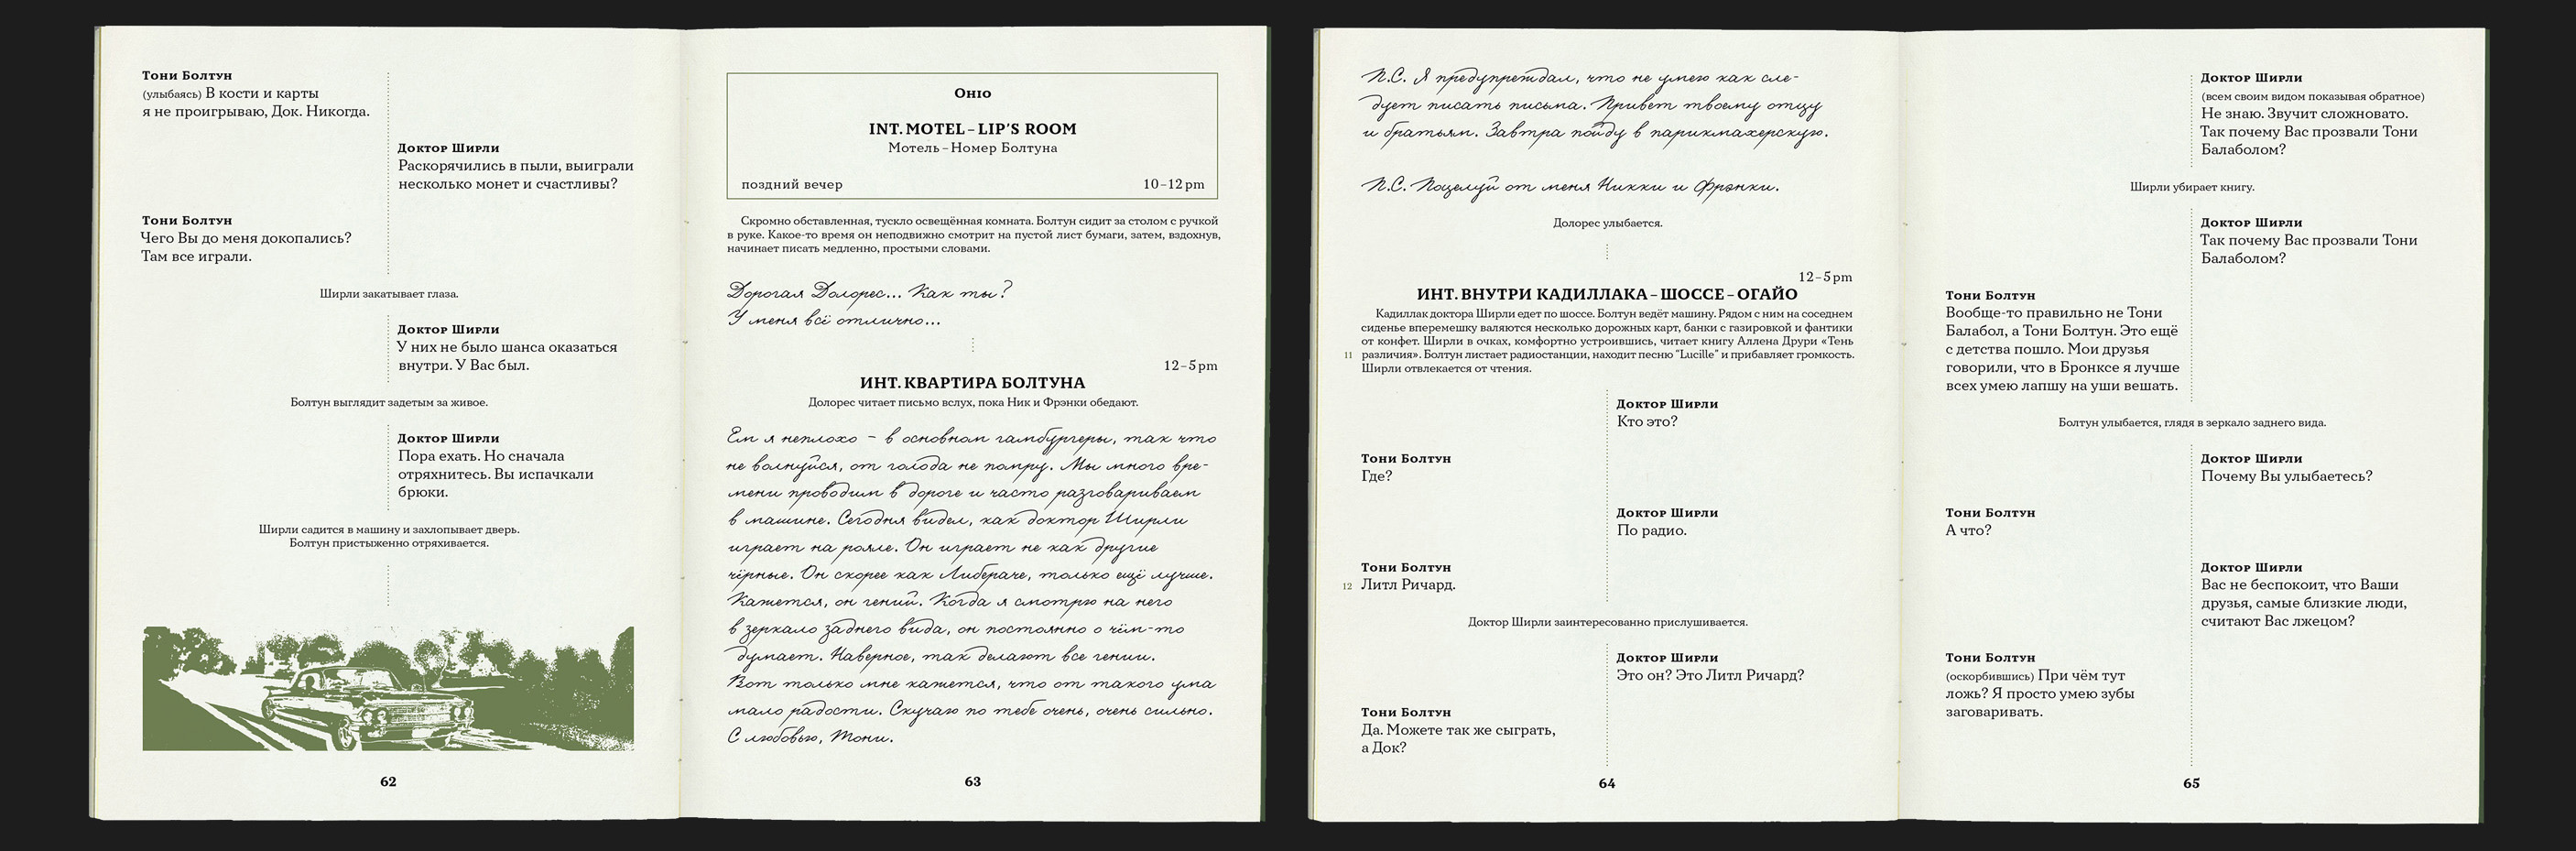 Тони Болтун
(улыбаясь) В кости и карты
я не проигрываю, Док. Никогда.
Доктор Ширли
Раскорячились в пыли, выиграли
несколько монет и счастливы?
Тони Болтун
Чего Вы до меня докопались?
Там все играли.
Ширли закатывает глаза.
Доктор Ширли
У них не было шанса оказаться
внутри. У Вас был.
Болтун выглядит задетым за живое.
Доктор Ширли
Пора ехать. Но сначала
отряхнитесь. Вы испачкали
брюки.
Ширли садится в машину и захлопывает дверь.
Болтун пристыженно отряхивается.
62
Ohio
INT. MOTEL – LIP'S ROOM
Мотель – Номер Болтуна
поздний вечер 10–12 pm
Скромно обставленная, тускло освещённая комната. Болтун сидит за столом с ручкой
в руке. Какое-то время он неподвижно смотрит на пустой лист бумаги, затем, вздохнув,
начинает писать медленно, простыми словами.
Дорогая Долорес... Как ты?
У меня всё отлично...
12–5 pm
ИНТ. КВАРТИРА БОЛТУНА
Долорес читает письмо вслух, пока Ник и Фрэнки обедают.
Ем я неплохо – в основном гамбургеры, так что
не волнуйся, от голода не помру. Мы много вре-
мени проводим в дороге и часто разговариваем
в машине. Сегодня видел, как доктор Ширли
играет на рояле. Он играет не как другие
чёрные. Он скорее как Либераче, только ещё лучше.
Кажется, он гений. Когда я смотрю на него
в зеркало заднего вида, он постоянно о чём-то
думает. Наверное, так делают все гении.
Вот только мне кажется, что от такого ума
мало радости. Скучаю по тебе очень, очень сильно.
С любовью, Тони.
63
П.С. Я предупреждал, что не умею как сле-
дует писать письма. Привет твоему отцу
и братьям. Завтра пойду в парикмахерскую.
П.С. Поцелуй от меня Никки и Фрэнки.
Долорес улыбается.
12–5 pm
ИНТ. ВНУТРИ КАДИЛЛАКА – ШОССЕ – ОГАЙО
Кадиллак доктора Ширли едет по шоссе. Болтун ведёт машину. Рядом с ним на соседнем
сиденье вперемешку валяются несколько дорожных карт, банки с газировкой и фантики
от конфет. Ширли в очках, комфортно устроившись, читает книгу Аллена Друри «Тень
11 различия». Болтун листает радиостанции, находит песню "Lucille" и прибавляет громкость.
Ширли отвлекается от чтения.
Доктор Ширли
Кто это?
Тони Болтун
Где?
Доктор Ширли
По радио.
Тони Болтун
12 Литл Ричард.
Доктор Ширли заинтересованно прислушивается.
Доктор Ширли
Это он? Это Литл Ричард?
Тони Болтун
Да. Можете так же сыграть,
а Док?
64
Доктор Ширли
(всем своим видом показывая обратное)
Не знаю. Звучит сложновато.
Так почему Вас прозвали Тони
Балаболом?
Ширли убирает книгу.
Доктор Ширли
Так почему Вас прозвали Тони
Балаболом?
Тони Болтун
Вообще-то правильно не Тони
Балабол, а Тони Болтун. Это ещё
с детства пошло. Мои друзья
говорили, что в Бронксе я лучше
всех умею лапшу на уши вешать.
Болтун улыбается, глядя в зеркало заднего вида.
Доктор Ширли
Почему Вы улыбаетесь?
Тони Болтун
А что?
Доктор Ширли
Вас не беспокоит, что Ваши
друзья, самые близкие люди,
считают Вас лжецом?
Тони Болтун
(оскорбившись) При чём тут
ложь? Я просто умею зубы
заговаривать.
65